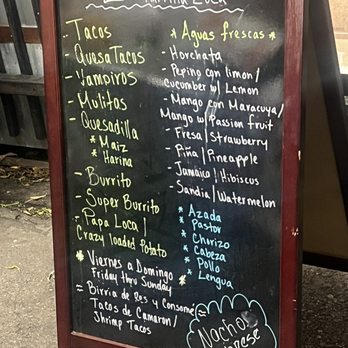 Parrilla Loca
- Tacos
- QuesaTacos
- Vampiros
- Mulitas
- Quesadilla
* Maiz
* Harina
- Burrito
- Super Burrito
- Papa Loca /
Crazy loaded Potato
* Viernes a Domingo *
Friday thru Sunday
= Birria de Res y Consome =
Tacos de Camaron /
Shrimp Tacos
* Aguas frescas *
- Horchata
- Pepino con limon /
Cucumber w/ Lemon
- Mango con Maracuya /
Mango w/ Passion fruit
- Fresa / Strawberry
- Piña / Pineapple
- Jamaica / Hibiscus
- Sandia / Watermelon
* Azada
* Pastor
* Chorizo
* Cabeza
* Pollo
* Lengua
Nachos